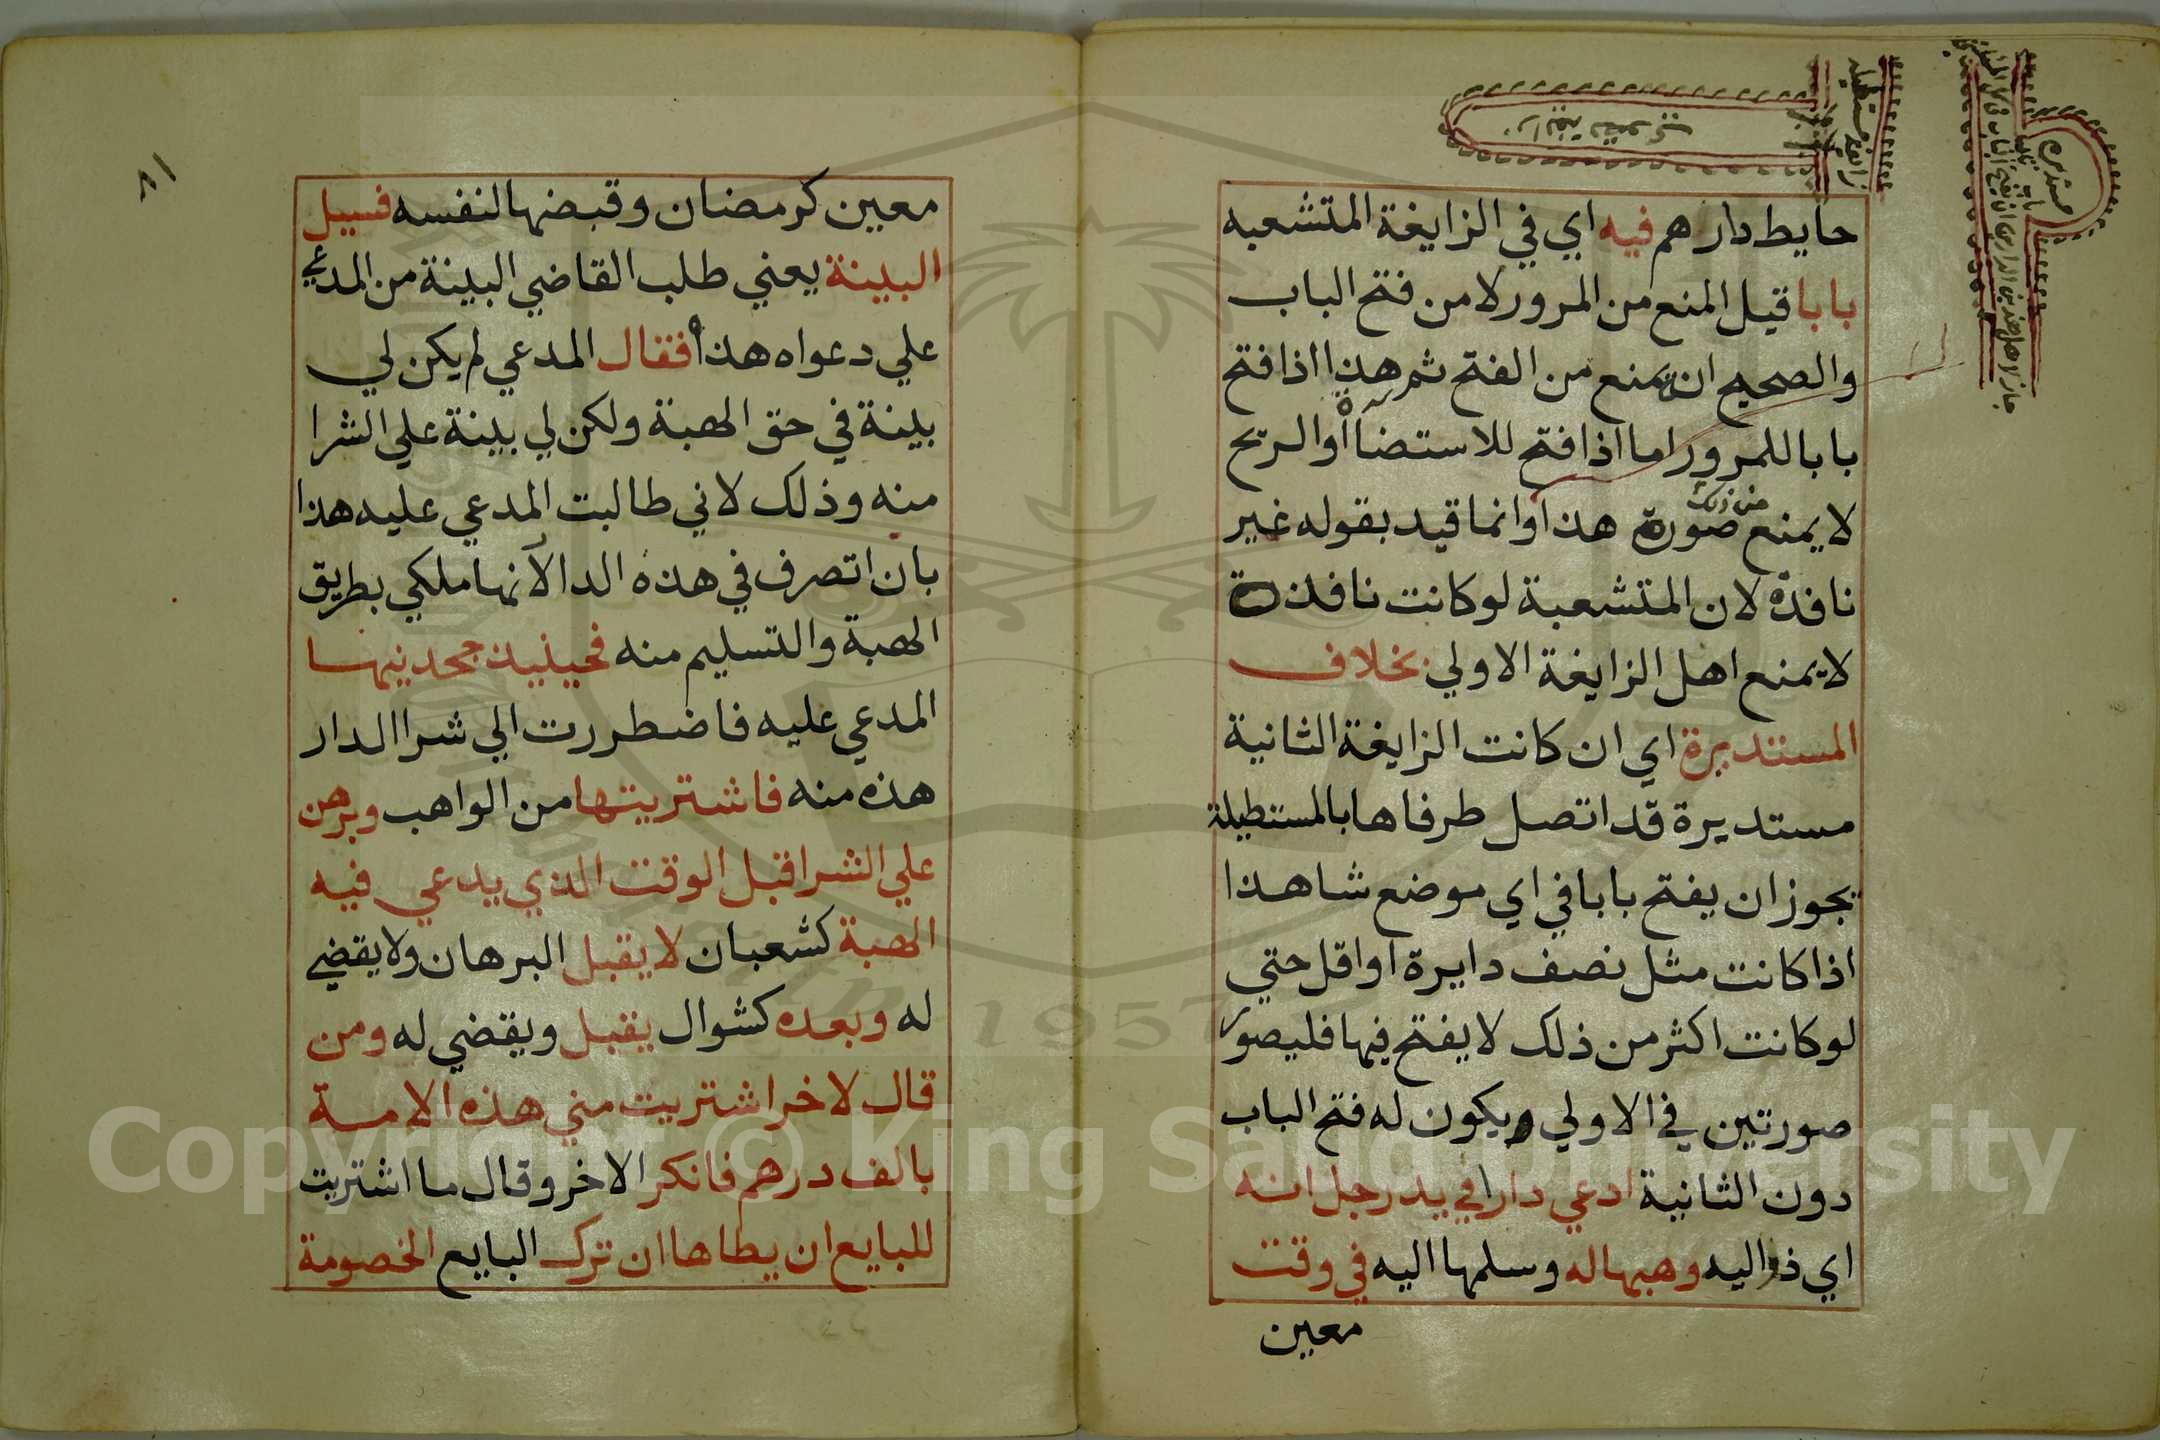 حايط دارهم فيه اي في الزايغة المتشعبه
بابا قيل المنع من المرور لا من فتح الباب
والصحيح ان يمنع من الفتح ثم هذا اذا فتح
بابا للمرور اما اذا فتح للاستضاأ أو الريح
من ذلك
لا يمنع صورة هذا وانما قيد بقوله غير
نافذة لان المتشعبة لو كانت نافذة
لا يمنع اهل الزايغة الاولي بخلاف
المستديرة اي ان كانت الزايغة الثانية
مستديرة قد اتصل طرفاها بالمستطيلة
يجوز ان يفتح بابا في اي موضع شا هذا
اذا كانت مثل نصف دايرة او اقل حتي
لو كانت اكثر من ذلك لا يفتح فيها فليصور
صورتين في الاولي ويكون له فتح الباب
دون الثانية ادعي دارا في يد رجل انه
اي ذواليه وهبها له وسلمها اليه في وقت
معين
معين كرمضان وقبضها لنفسه فسيل
البينة يعني طلب القاضي البينة من المدعي
علي دعواه هذا فقال المدعي لم يكن لي
بينة في حق الهبة ولكن لي بينة علي الشرا
منه وذلك لاني طالبت المدعي عليه هذا
بان اتصرف في هذه الدا لانها ملكي بطريق
الهبة والتسليم منه فحينيذ جحدنيها
المدعي عليه فاضطررت الي شرا الدار
هذه منه فاشتريتها من الواهب وبرهن
علي الشرا قبل الوقت الذي يدعي فيه
الهبة كشعبان لا يقبل البرهان ولا يقضي
له وبعده كشوال يقبل ويقضي له ومن
قال لاخر اشتريت مني هذه الامة
بالف درهم فانكر الاخر وقال ما اشتريت
للبايع ان يطاها ان ترك البايع الخصومة
Copyright © King Saud University
1957